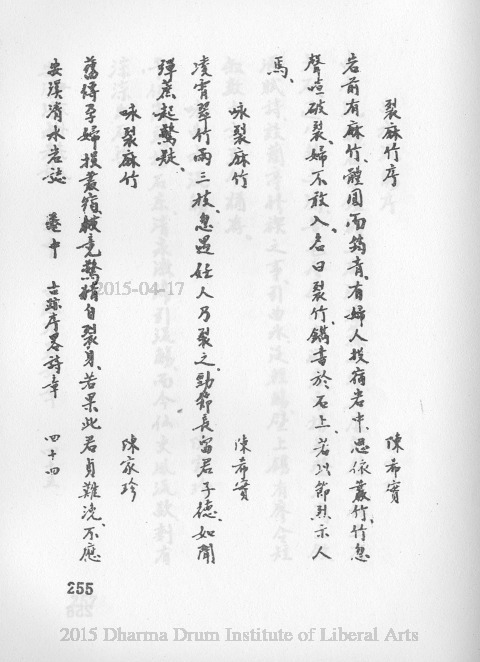 裂麻竹序 陳希實
岩前有麻竹、體圓而筠青、有婦人投宿岩中、思依叢竹、竹忽
聲喧破裂、婦不敢入、名曰裂竹、鐫書於石上、若以節烈示人
焉、
咏裂麻竹 陳希實
凌霄翠竹兩三枝、忽遇任人乃裂之、勁節長留君子德、如聞
彈蕉起驚疑、
咏裂麻竹 陳家珍
舊傳孕婦投叢宿、竟驚指自裂身、若果此君貞難浼、不應
安溪清水岩誌 卷中 古跡序畧詩章 四十四
255
2015-04-17
2015 Dharma Drum Institute of Liberal Arts